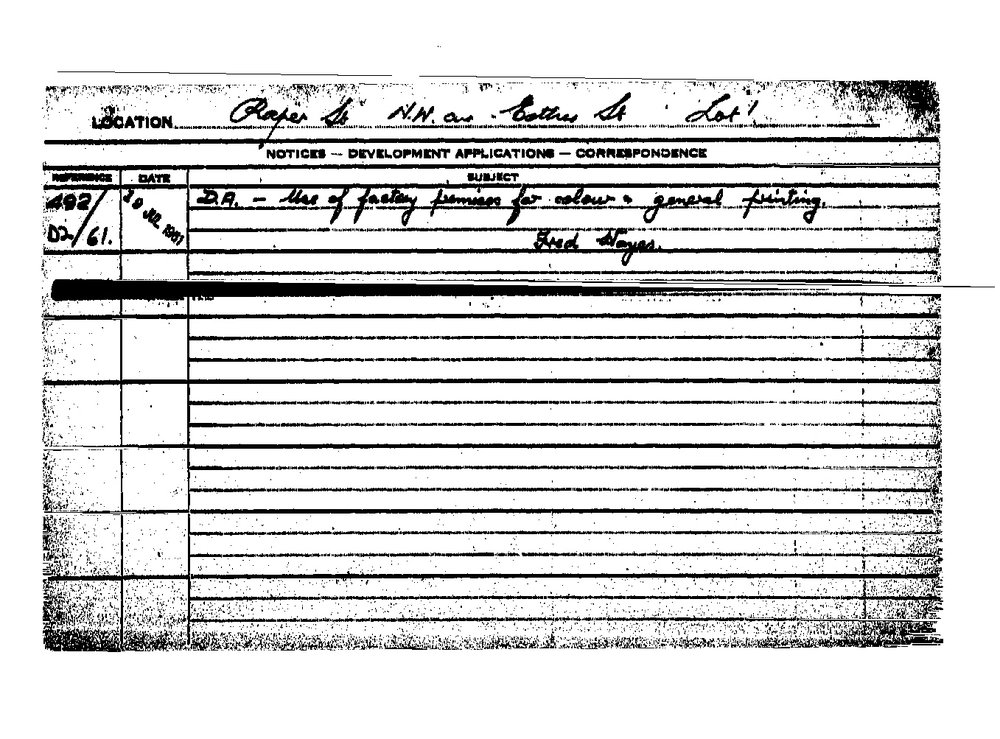 LOCATION Raper St N.W. cnr Esther St Lot 1
NOTICES — DEVELOPMENT APPLICATIONS — CORRESPONDENCE
REFERENCE DATE SUBJECT
492/ D.A. - Use of factory premises for colour & general printing.
D2/61. JUL 1961 Fred Hayes.